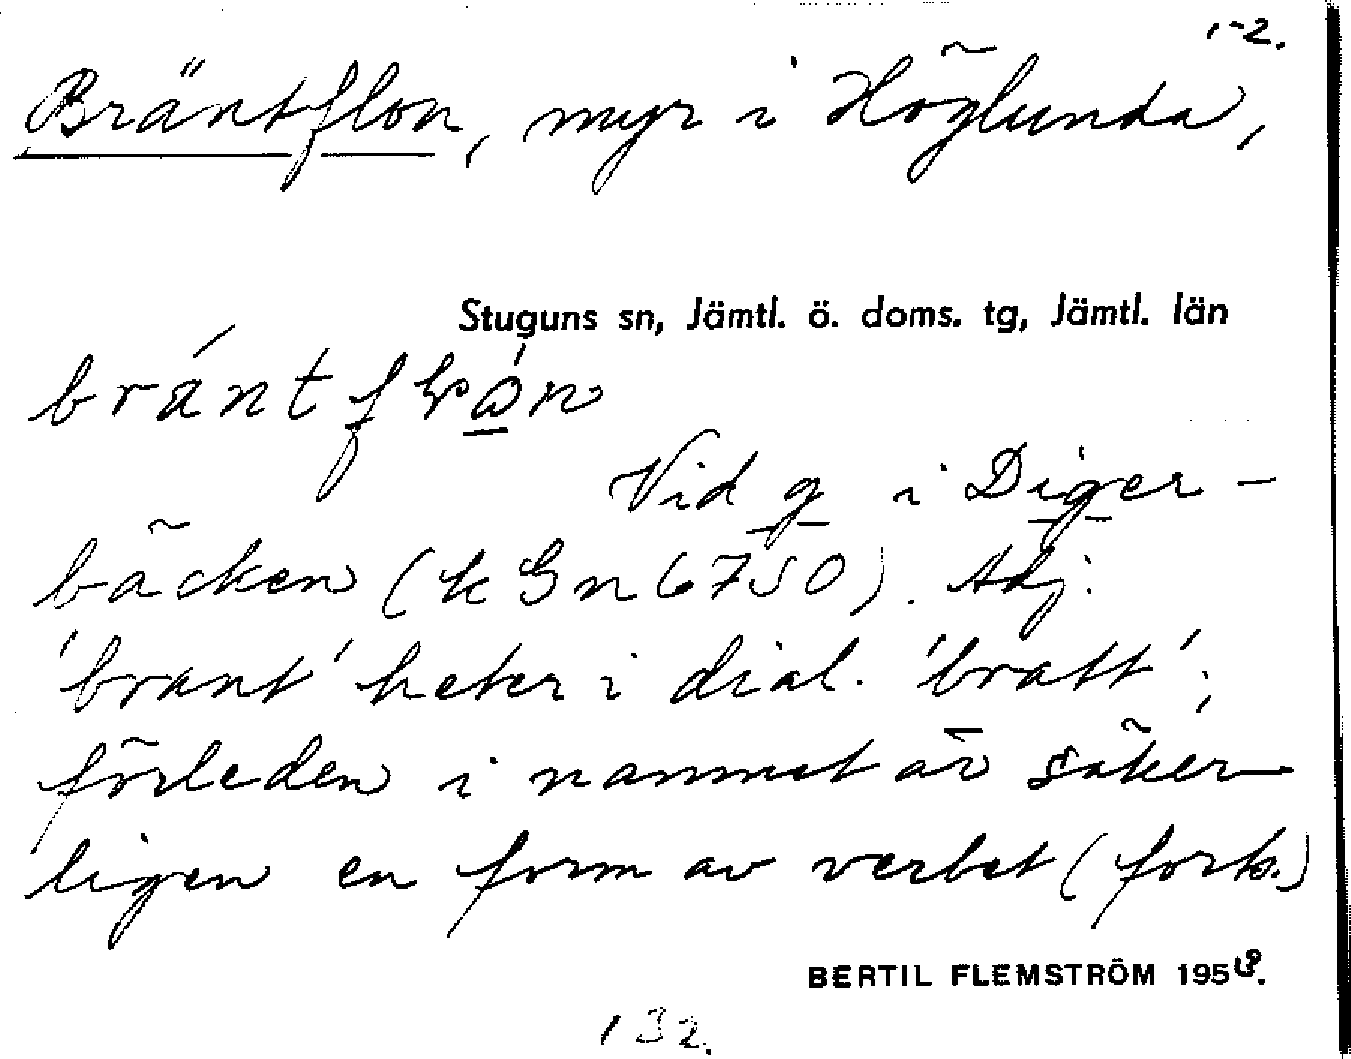 1-2.
Bräntflon, myr i Höglunda,
Stuguns sn, Jämtl. ö. doms. tg, Jämtl. län
Vid g i Diger-
bäcken (k Gn 6750). Adj.
'brant' heter i dial. 'bratt';
förleden i namnet är säker-
ligen en form av verbet (forts.)
BERTIL FLEMSTRÖM 1959.
132.